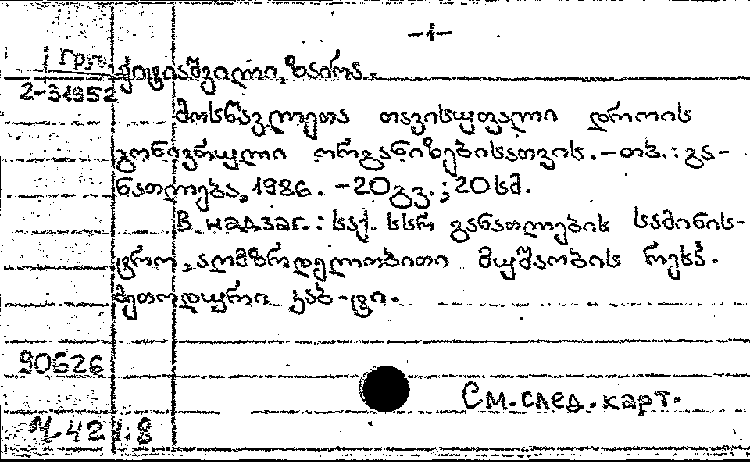 -1-
Груз.
2-31952
ქიტიაშვილი, ზაირა.
მოსწავლეთა თავისუფალი დროის
გონივრული ორგანიზებისათვის. - თბ.: გა-
ნათლება, 1986. - 20 გვ.; 20 სმ.
В надзаг.: საქ. სსრ განათლების სამინის-
ტრო, აღმზრდელობითი მუშაობის რესპ.
მეთოდური კაბ-ტი.
90626
См. след. карт.
Ч 42 1.8